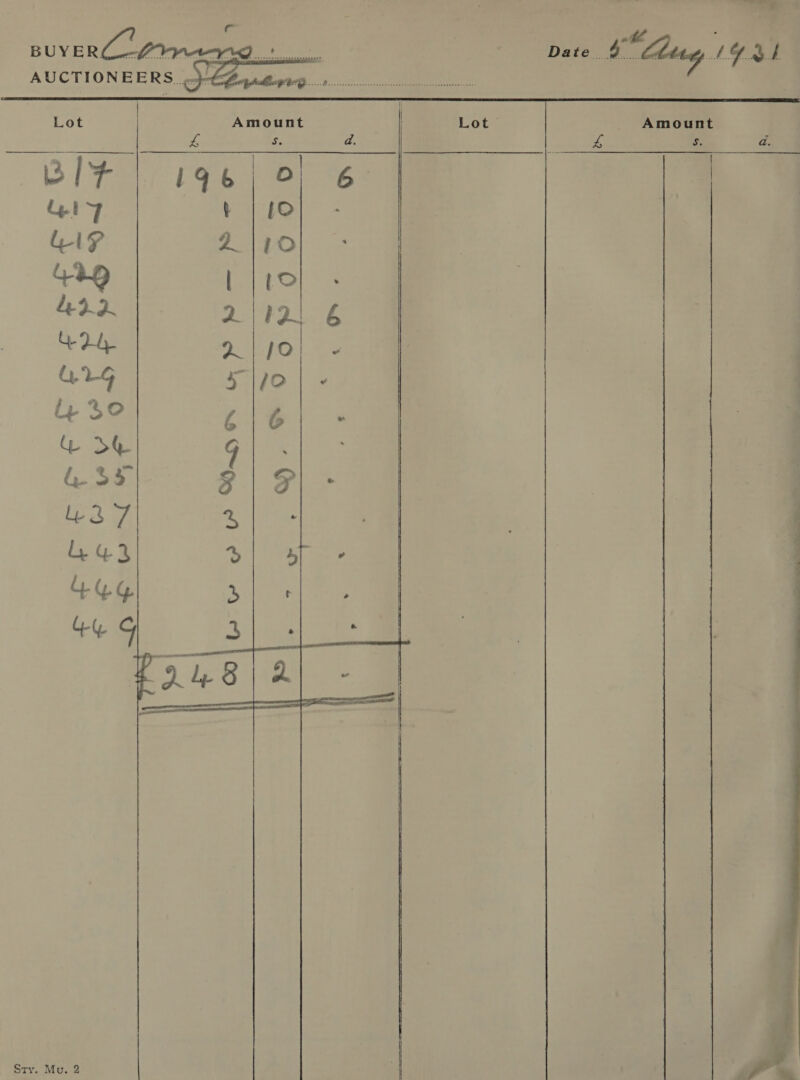 BUYER
AUCTIONEERS Stevens
Date 5th Aug 1931
Lot Amount Lot Amount
£ s. d. £ s. d.
B/F 196 0 6
417 1 10 -
418 2 10 -
1 10 -
422 2 12 6
424 2 10 -
429 5 10 -
430 6 6 -
434 9 - -
435 8 8 -
437 3 - -
443 3 5 -
444 3 - -
449 3 - -
£248 2 -
Sty. Mu. 2